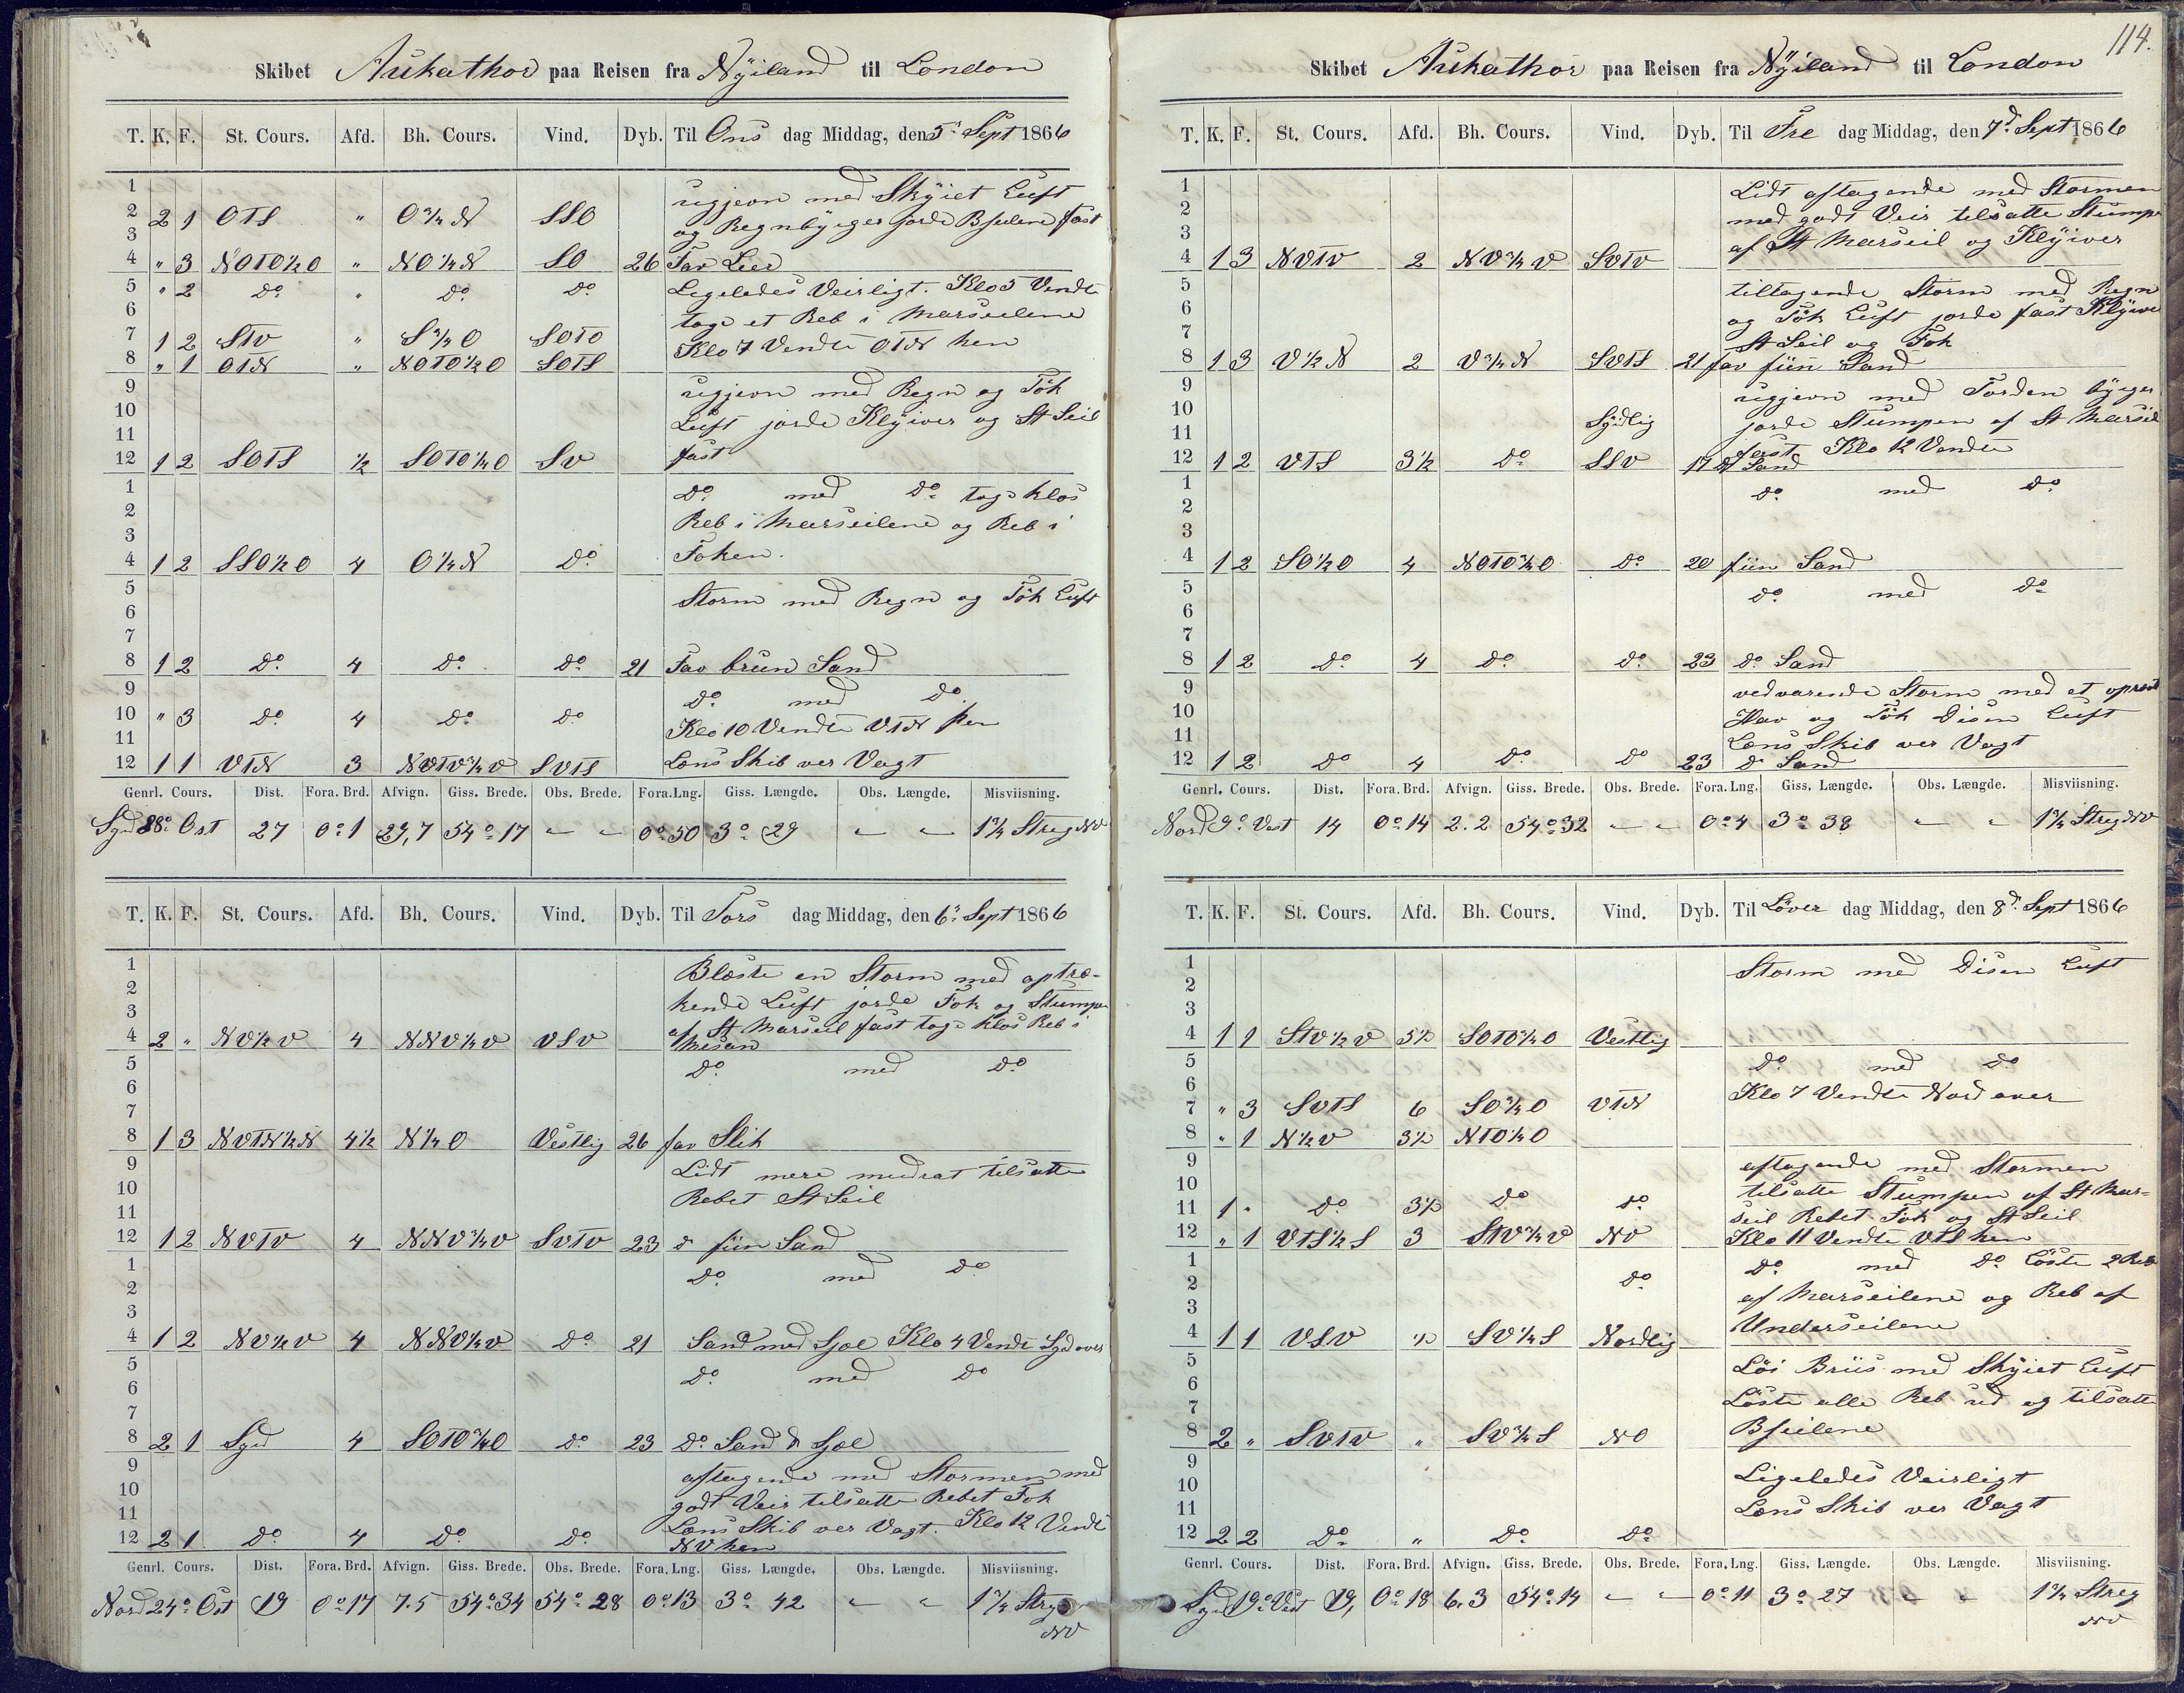 Skibet Aukathor paa Reisen fra Nÿiland til London
T. K. F. St. Cours. Afd. Bh. Cours. Vind. Dyb. Til Ons dag Middag, den 5' Sept 1866
1 ugjevn med Skÿiet Luft
2 2 1 OTS " O¾N SSO og Regnbÿiger jorde Bseilene fast
3
4 " 3 NOTO½O " NO¼N SO 26 Fav Leer
5 " 2 do " do do Ligeledes Veirligt. Klo 5 Vendte
6 toge et Reb i Marseilene
7 1 2 STV " S¾O SOTO
8 " 1 OTN " NOTO½O SOTS Klo 7 Vendte OTN hen
9 ugjevn med Regn og Tÿk
10 Luft jorde Klÿiver og St Seil
11
12 1 2 SOTS ½ SOTO¼O SV fast
1 do med do toge klos
2 Reb i Marseilene og Reb i
3
4 1 2 SSO½O 4 O¼N do Foken.
5 Storm med Regn og Tÿk Luft
6
7
8 1 2 do 4 do do 21 Fav brun Sand
9 do med do
10 " 3 do 4 do do Klo 10 Vendte VTN hen
11
12 1 1 VTN 3 NVTV¾V SVTS Lens Skib ver Vagt
Genrl. Cours. Dist. Fora. Brd. Afvign. Giss. Brede. Obs. Brede. Fora. Lng. Giss. Længde. Obs. Længde. Misviisning.
Syd 88° Ost 27 0° 1 29,7 54° 17 " " 0° 50 3° 29 " " 1¾ Streg NV
T. K. F. St. Cours. Afd. Bh. Cours. Vind. Dyb. Til Tors dag Middag, den 6' Sept 1866
1 Blæste en Storm med optræ-
2 kende Luft jorde Fok og Stumpen
3
4 2 " NV½V 4 NNV¼V VSV af St Marseil fast toge klos Reb i
Mesan
5 do med do
6
7
8 1 3 NVTN½N 4½ N¼O Vestlig 26 fav Slik
9 Lidt mere medrat tilsatte
10 Rebet St Seil
11
12 1 2 NVTV 4 NNV¾V SVTV 23 do fiin Sand
1 do med do
2
3
4 1 2 NV½V 4 NNV¼V do 21 Sand med Sjæl Klo 4 Vendt Syd over
5 do med do
6
7
8 2 1 Syd 4 SOTO¾O do 23 do Sand & Sjæl
9 aftagende med Stormen med
10 godt Veir tilsatte Rebet Fok
11 Lens Skib ver Vagt. Klo 12 Vendt
12 2 1 do 4 do do NV hen
Genrl. Cours. Dist. Fora. Brd. Afvign. Giss. Brede. Obs. Brede. Fora. Lng. Giss. Længde. Obs. Længde. Misviisning.
Nord 24° Ost 19 0° 17 7.5 54° 34 54° 28 0° 13 3° 42 " " 1¾ Streg
NV
114.
Skibet Aukathor paa Reisen fra Nÿiland til London
T. K. F. St. Cours. Afd. Bh. Cours. Vind. Dyb. Til Fre dag Middag, den 7d Sept 1866
1 Lidt aftagende med Stormen
2 med godt Veir tilsatte Stumpen
3 af St Marseil og Klÿiver
4 1 3 NVTV 2 NV¾V SVTV
5 tiltagende Storm med Regn
6 og Tÿk Luft jorde fast Klÿiver
7 St Seil og Fok
8 1 3 V½N 2 V¾N SVTS 21 fav fiin Sand
9 ugjevn med Torden bÿiger
10 Sÿdlig jorde Stumpen af St Marseil
11 fast Klo 12 Vendte
12 1 2 VTS 3½ do SSV 17 do Sand
1 do med do
2
3
4 1 2 SO½O 4 NOTO¾O do 20 fiin Sand
5 do med do
6
7
8 1 2 do 4 do do 23 do Sand
9 vedvarende Storm med et oprørt
10 Hav og Tÿk Disen Luft
11 Lens Skib ver Vagt
12 1 2 do 4 do do 23 do Sand
Genrl. Cours. Dist. Fora. Brd. Afvign. Giss. Brede. Obs. Brede. Fora. Lng. Giss. Længde. Obs. Længde. Misviisning.
Nord 9° Vest 14 0° 14 2.2 54° 32 " " 0° 4 3° 38 " " 1¾ Streg NV
T. K. F. St. Cours. Afd. Bh. Cours. Vind. Dyb. Til Löver dag Middag, den 8d Sept 1866
1 Storm med Disen Luft
2
3
4 1 1 STV½V 5½ SOTO¾O Vestlig
5 do med do
6 Klo 7 Vendte Nord over
7 " 3 SVTS 6 SO¾O VTN
8 " 1 N½V 3½ NTO¼O
9 aftagende med Stormen
10 tilsatte Stumpen af St Mar-
11 1 " do 3½ do do seil Rebet Fok og St Seil
12 " 1 VTS½S 3 STV¾V NV Klo 11 Vendte VTS hen
1 do med do Löste 2 Reb
2 do af Marseilene og Reb af
3
4 1 1 VSV ½ SV¼S Nordlig Underseilene
5 Löi Briis med Skÿiet Luft
6
7 Löste alle Reb ud og tilsatte
8 2 " SVTV " SV¾S NO Bseilene
9 Ligeledes Veirligt
10
11 Lens Skib ver Vagt
12 2 2 do " do do
Genrl. Cours. Dist. Fora. Brd. Afvign. Giss. Brede. Obs. Brede. Fora. Lng. Giss. Længde. Obs. Længde. Misviisning.
Syd 19° Vest 19, 0° 18 6.3 54° 14 " " 0° 11 3° 27 " " 1¾ Streg
NV